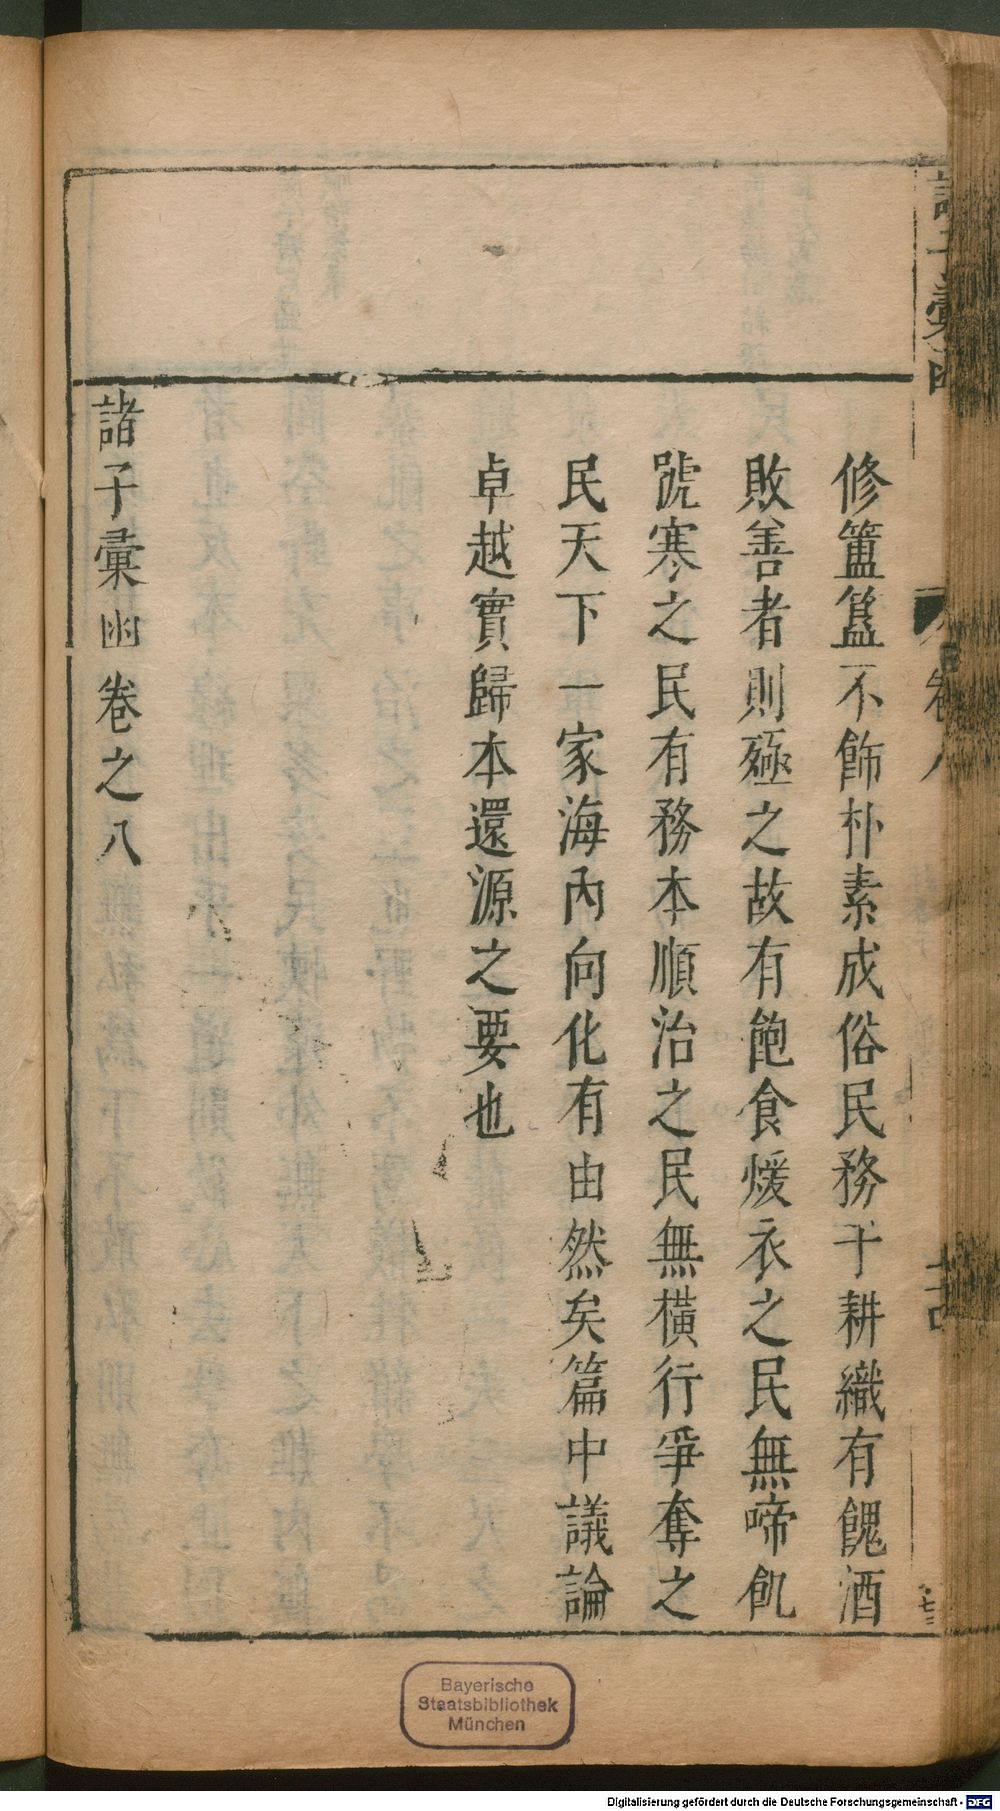 諸子彙函
卷八
修簠簋不飾朴素成俗民務于耕織有餽酒
敗善者則殛之故有飽食煖衣之民無啼飢
號寒之民有務本順治之民無橫行爭奪之
民天下一家海內向化有由然矣篇中議論
卓越實歸本還源之要也
諸子彙函卷之八
Bayerische
Staatsbibliothek
München
Digitalisierung gefördert durch die Deutsche Forschungsgemeinschaft - DFG